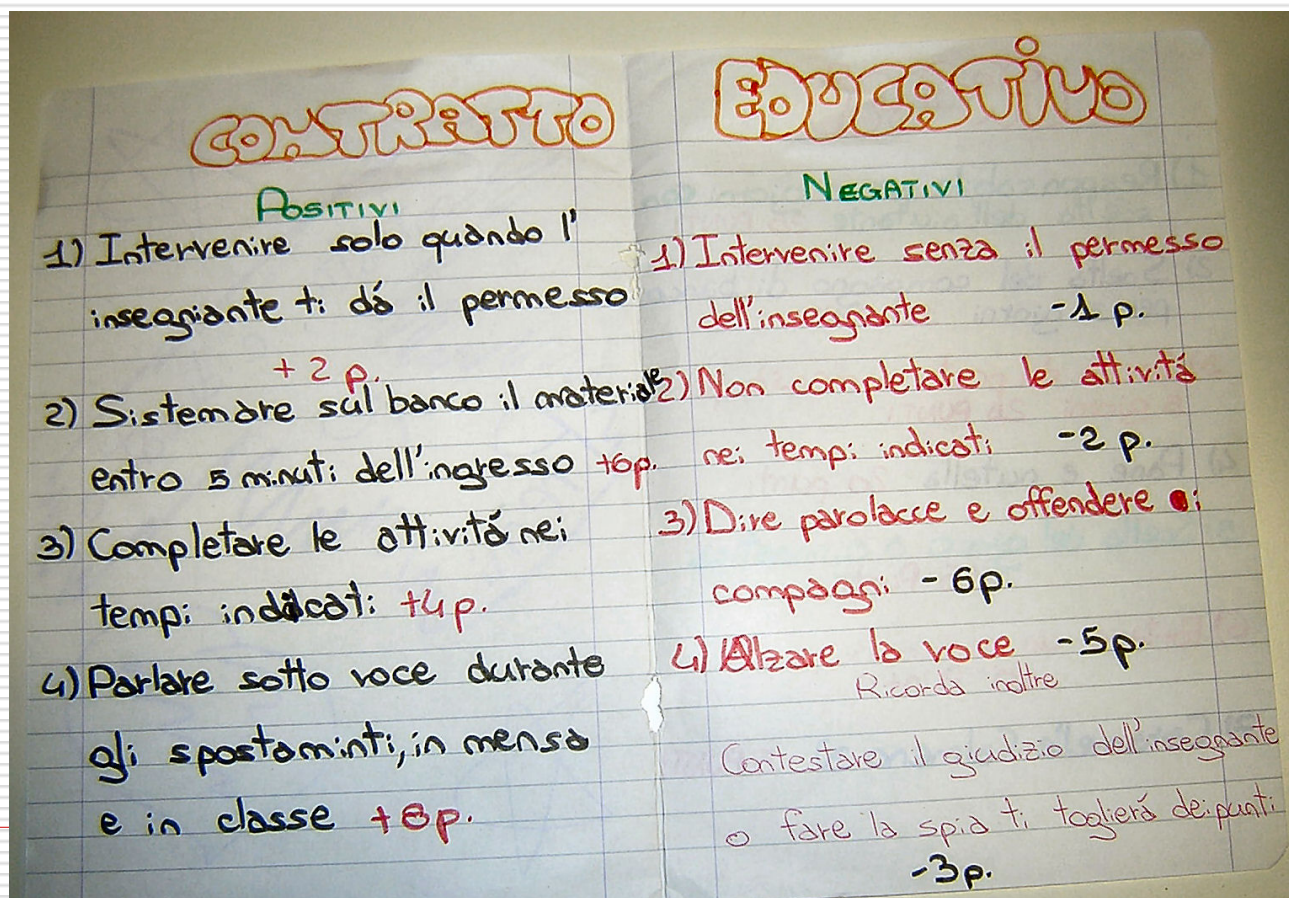 CONTRATTO EDUCATIVO
POSITIVI
1) Intervenire solo quando l'
insegniante ti dá il permesso
+ 2 p.
2) Sistemare sul banco il materiale
entro 5 minuti dell'ingresso +6p.
3) Completare le attivitá nei
tempi indicati +4p.
4) Parlare sotto voce durante
gli spostaminti, in mensa
e in classe
NEGATIVI
1) Intervenire senza il permesso
dell'insegnante -1 p.
2) Non completare le attivitá
nei tempi indicati -2 p.
3) Dire parolacce e offendere i
compagni - 6p.
4) Alzare la voce -5p.
Ricorda inoltre
Contestare il giudizio dell'insegnante
o fare la spia ti toglierá dei punti
-3p.